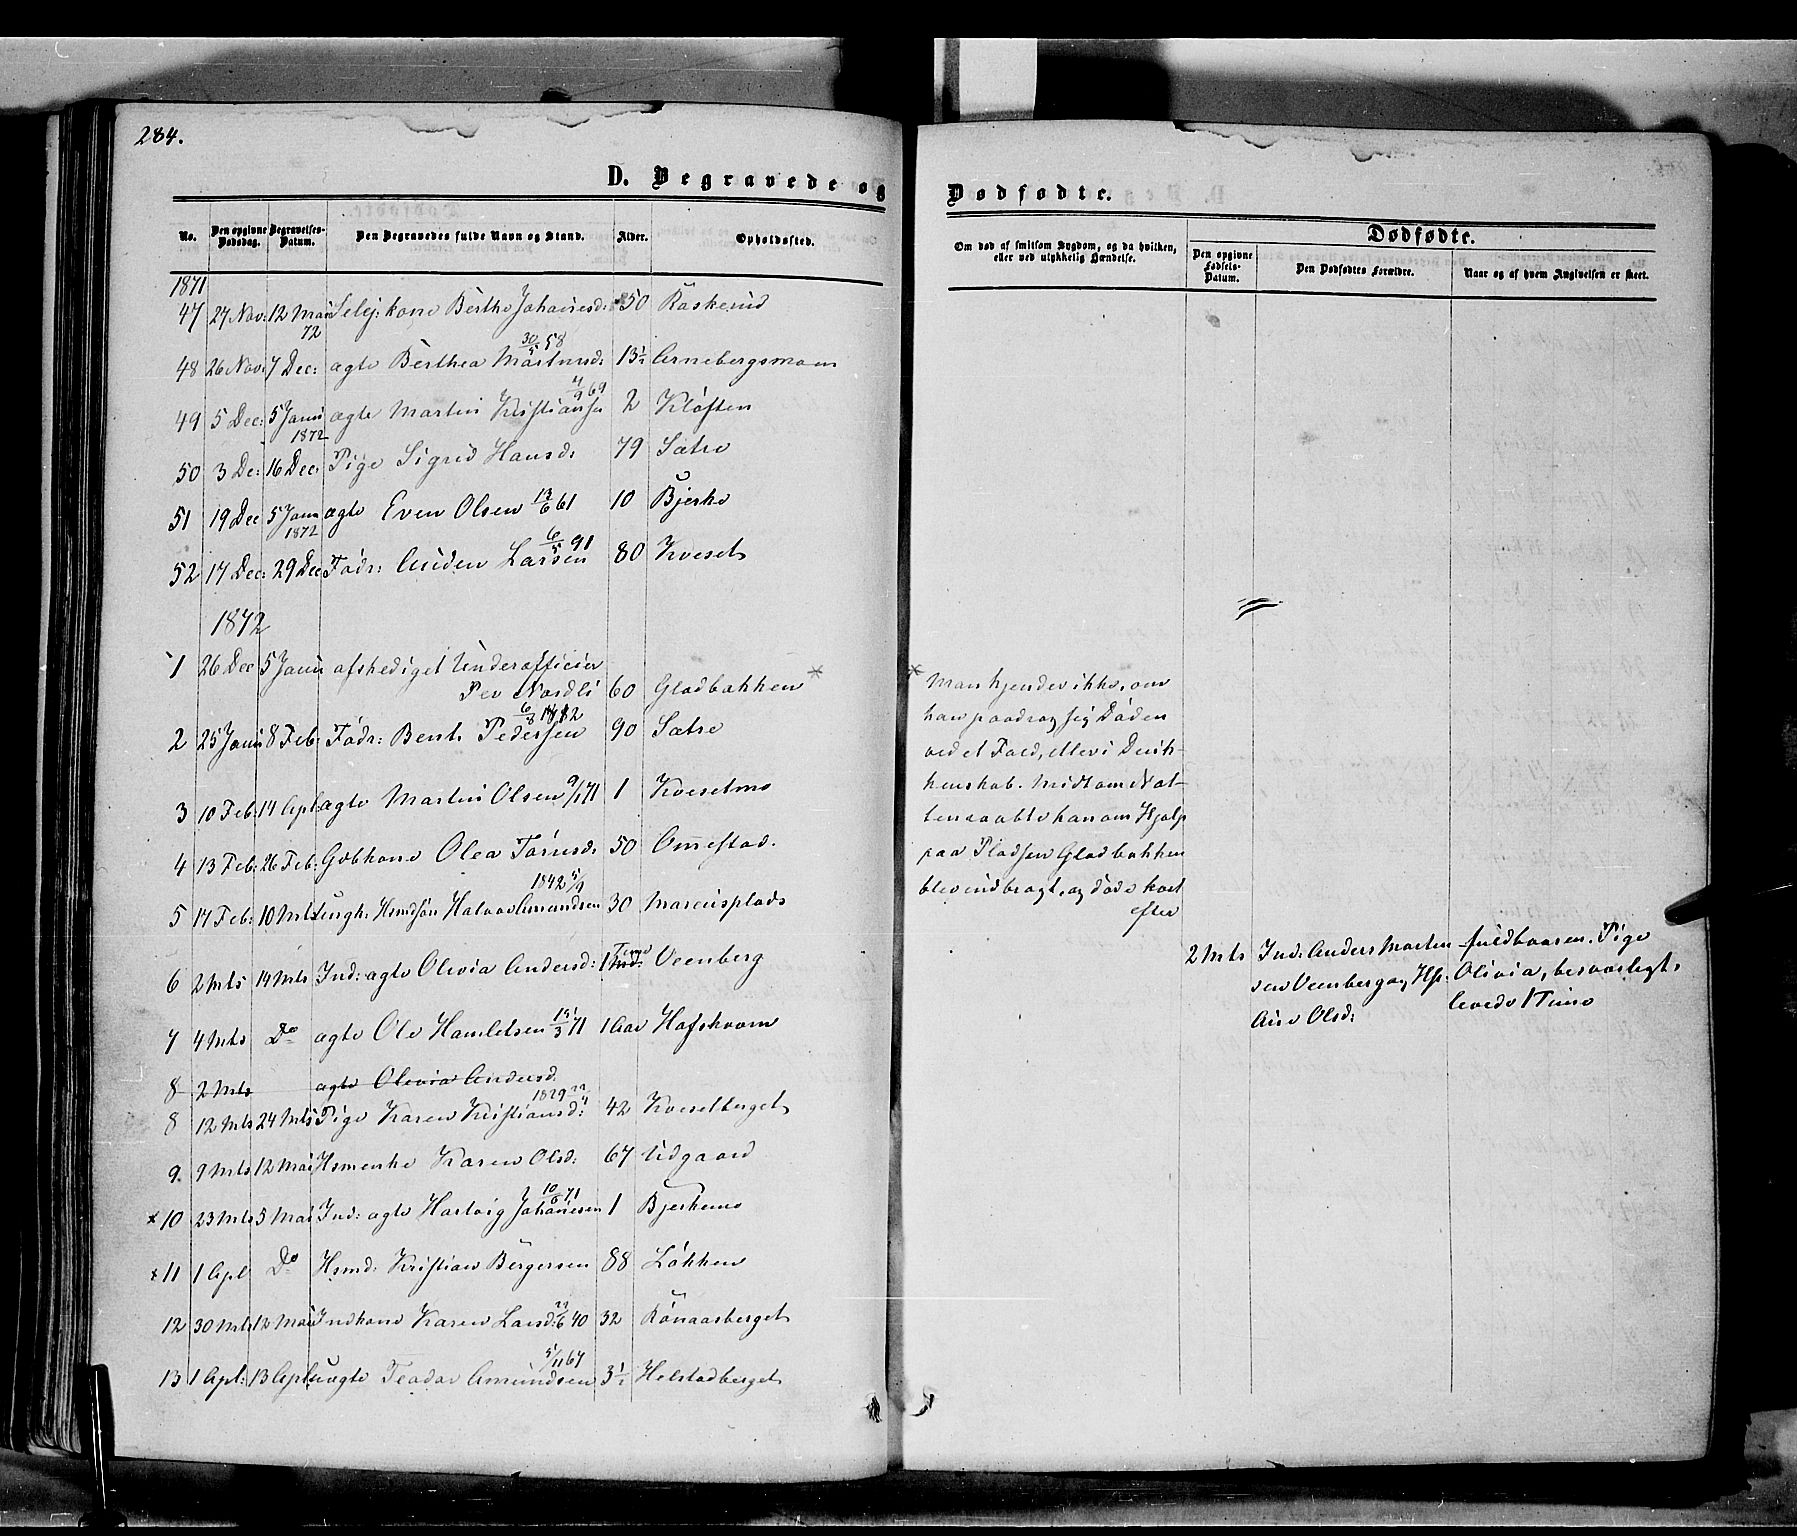 284.
D. Begravede og
Dødfødte.
No.
Den opgivne Dødsdag.
Begravelses-Datum.
Den Begravedes fulde Navn og Stand.
Alder.
Opholdssted.
Om død af smitsom Sygdom, og da hvilken, eller ved ulykkelig Hændelse.
Dødfødte.
Den opgivne Fødsels-Datum.
Den Dødfødtes Forældre.
Naar og af hvem Angivelsen er skeet.
1871
47 27 Nov: 12 Mai 72 Selvej: kone Berthe Johannesd: 50 Raskerud
48 26 Nov: 7 Dec: ægte Berthea Martinsd: 30/5 58 13½ Arnebergsmoen
49 5 Dec: 5 Janu 1872 ægte Martin Kristiansen 4/9 69 2 Kløften
50 3 De: 16 Dec: Pige Sigrid Hansd: 79 Sætre
51 19 Dec 5 Janu 1872 ægte Even Olsen 13/6 61 10 Bjerke
52 17 Dec: 29 Dec Fødr: Auden Larsen 6/5 91 80 Kveset
1872
1 26 Dec 5 Janu afskediget Underofficier
Per Nordli 60 Gladbakken *
2 25 Janu 8 Feb: Fødr: Bent Pedersen 90 Sætre
3 10 Feb: 14 Apl ægte Martin Olsen 9/1 71 1 Kvesetmo
4 13 Feb: 26 Feb: Gbkone Olea Tørrisd: 50 Omestad.
5 14 Feb: 10 Mts ungk: Hsmdsøn Halvor Amundsen 1842 5/9 30 Marcusplads
6 2 Mts 14 Mts Ind: ægte Olivia Andersd: 1 Time Veenberg
7 4 Mts Do ægte Ole Hamletsen 19/3 71 1 Aar Hofskvern
8 2 Mts ægte Olivia Andersd.
8 12 Mts 24 Mts Pige Karen Kristiansd: 1829 42 Kvesetberget
9. 9 Mts 12 Mai Hsmenke Karen Olsd: 67 Udgaard
x 10 23 Mts 5 Mai Ind: ægte Hartvig Johannesen 10/6 71 1 Bjerkemo
x 11 1 Apl Do Hsmd: Kristian Børgersen 88 Løkken
12 30 Mts 12 Mai Indkone Karen Larsd: 22/6 40 32 Rønaasberget
13 1 Apl: 13 Apl uægte Teodor Amundsen 5/11 67 3½ Helstadberget
* Man kjender ikke, om
han paadrog sig Døden
ved et Fald, eller i Druk-
kenskab. Midt om Nat-
ten raabte han om Hjælp
paa Pladsen Gladbakken
blev indbragt, og døde kort
efter
2 Mts Ind: Anders Marten
sen Veenberg og Hst.
Ane Olsd:
fuldbaaren. Pige
Olivia, besværligt.
levede 1 Time